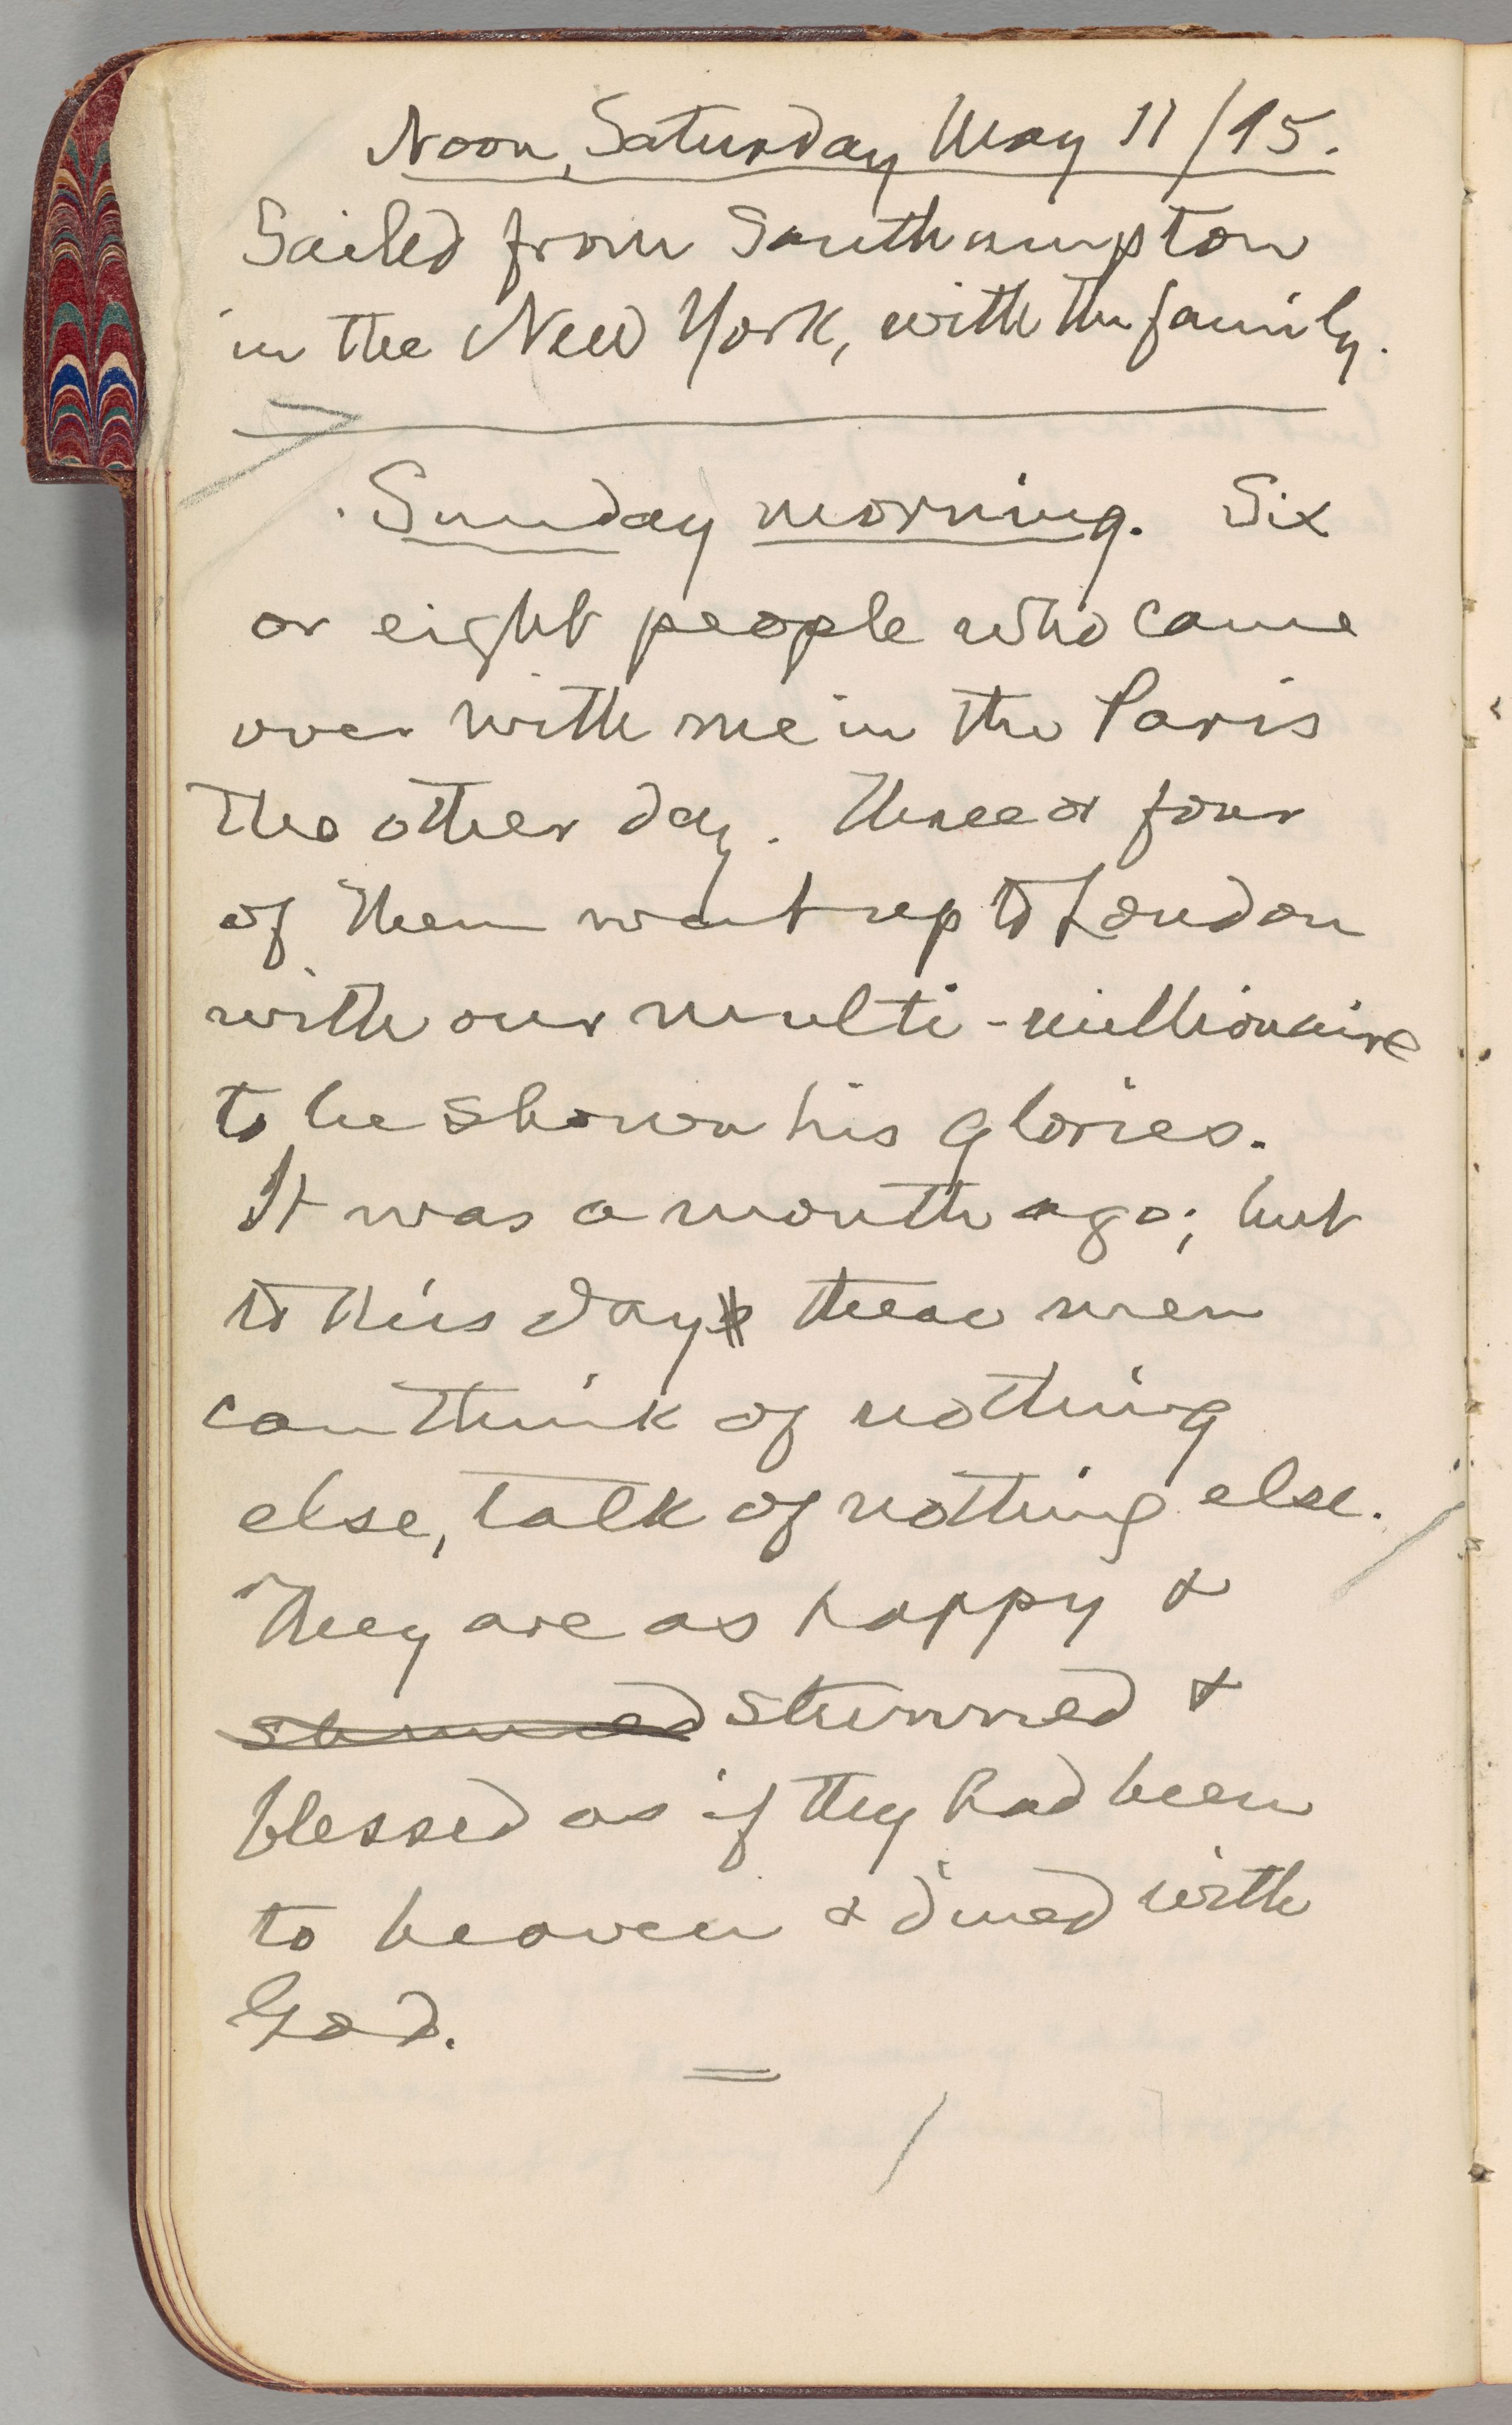 Noon, Saturday May 11/95.
Sailed from Southampton
in the New York, with the family.
Sunday morning. Six
or eight people who came
over with me in the Paris
the other day. Three or four
of them went up to London
with our multi-millionaire
to be shown his glories.
It was a month ago; but
to this day these men
can think of nothing
else, talk of nothing else.
They are as happy &
stunned stunned &
blessed as if they had been
to heaven & dined with
God.